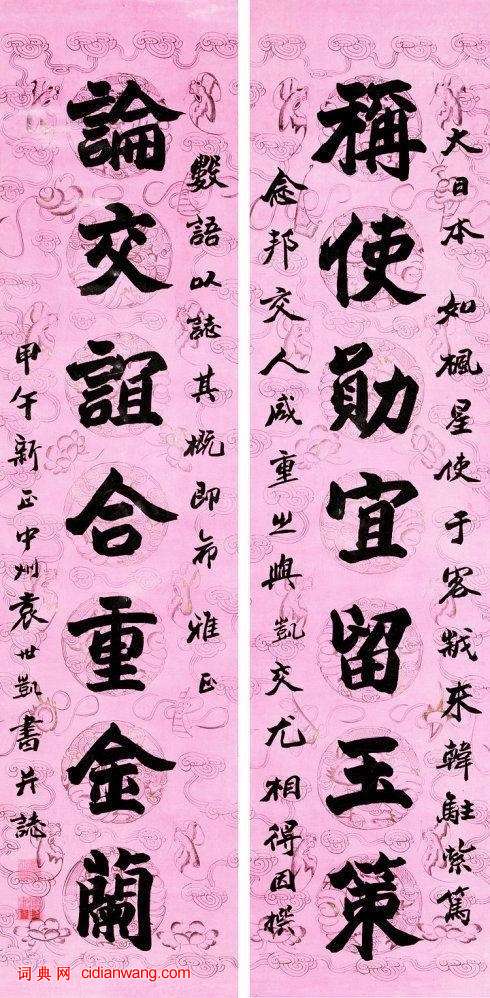 大日本 如楓星使于客秋來韓駐紮篤
稱使勛宜留玉策
念邦交人咸重之與凱交尤相得因撰
數語以誌其概即希雅正
論交誼合重金蘭
甲午新正中州袁世凱書并誌
词典网 cidianwang.com